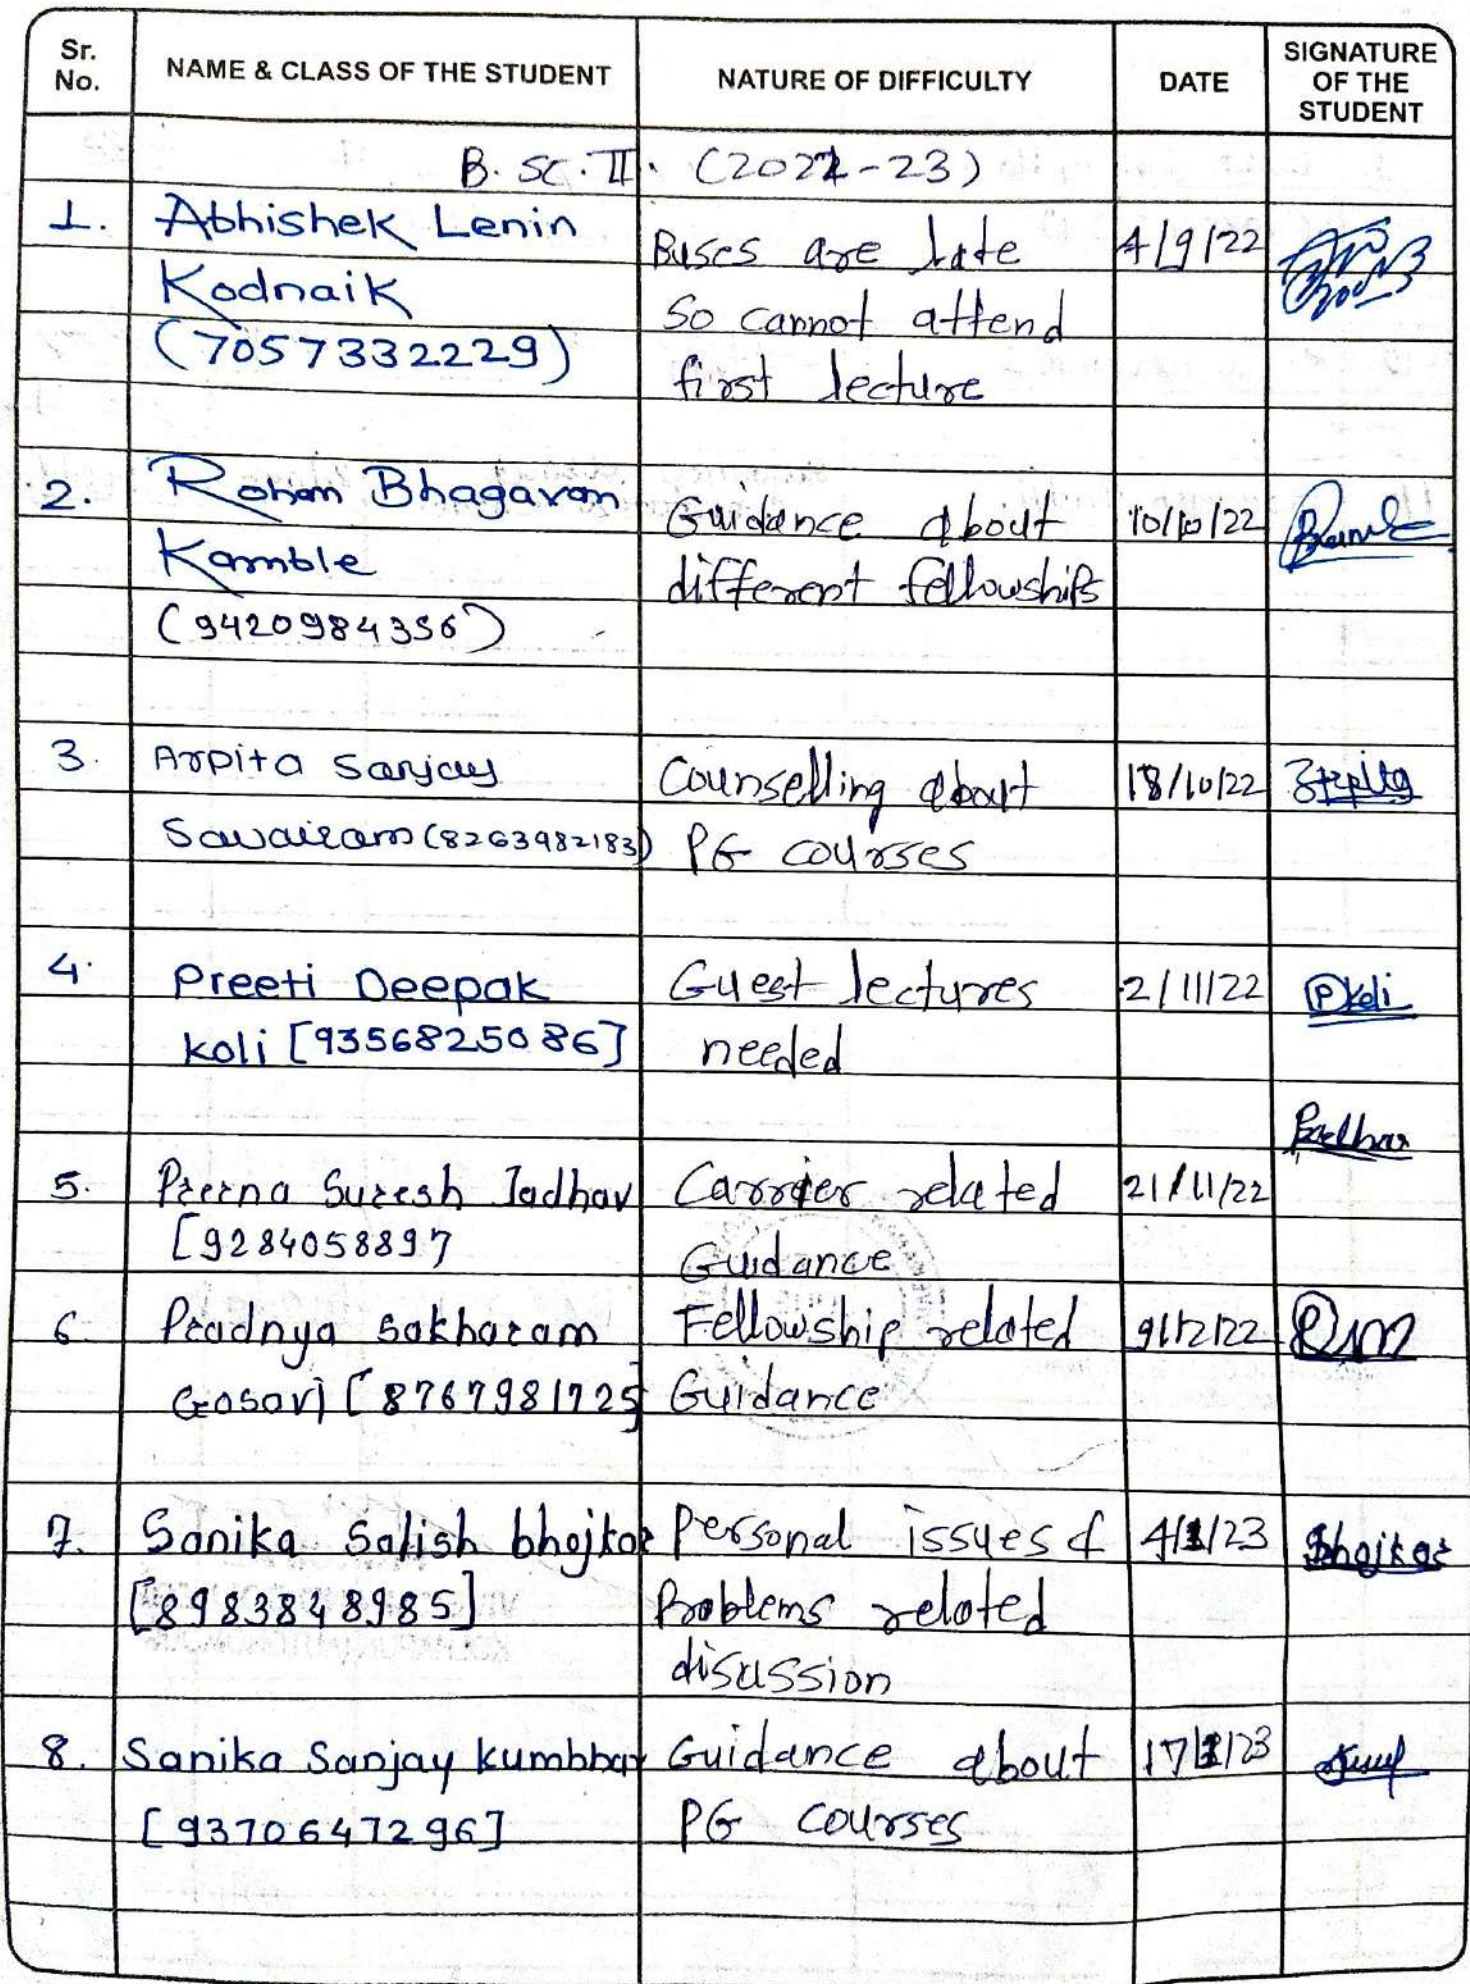 Sr. No.
NAME & CLASS OF THE STUDENT
NATURE OF DIFFICULTY
DATE
SIGNATURE OF THE STUDENT
B. Sc. II. (2022-23)
1. Abhishek Lenin
Kodnaik
(7057332229)
Buses are late
So cannot attend
first lecture
4/9/22
2. Rohan Bhagavan
Kamble
(9420984356)
Guidance about
different fellowships
10/10/22
3. Arpita Sanjay
Sawairam (8263982183)
Counselling about
PG courses
18/10/22
4. Preeti Deepak
Koli [9356825086]
Guest lectures
needed
2/11/22
PKoli
5. Prerna Suresh Jadhav
[9284058897
Carrier related
Guidance
21/11/22
6 Pradnya Sakharam
Gosavi [8767981725
Fellowship related
Guidance
9/12/22
7. Sanika Satish bhojkar
[8983848985]
Personal issues &
Problems related
disussion
4/1/23
Bhojkar
8. Sanika Sanjay Kumbhar
[9370647296]
Guidance about
PG courses
17/1/23